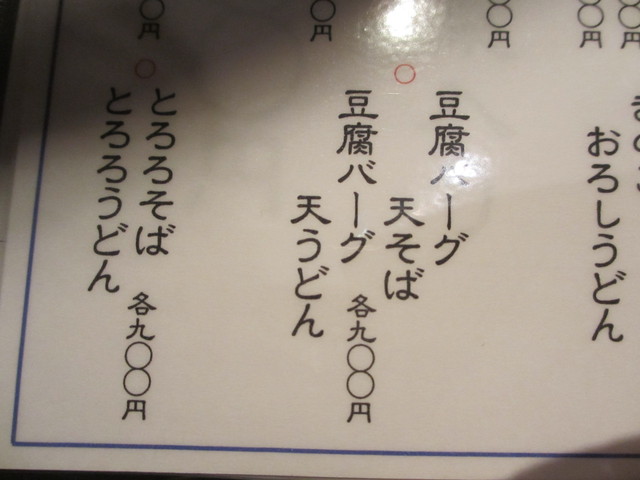 おろしうどん
円
円
円
○
豆腐バーグ
天そば
豆腐バーグ
天うどん
各九〇〇円
円
円
○
とろろそば
とろろうどん
各九〇〇円